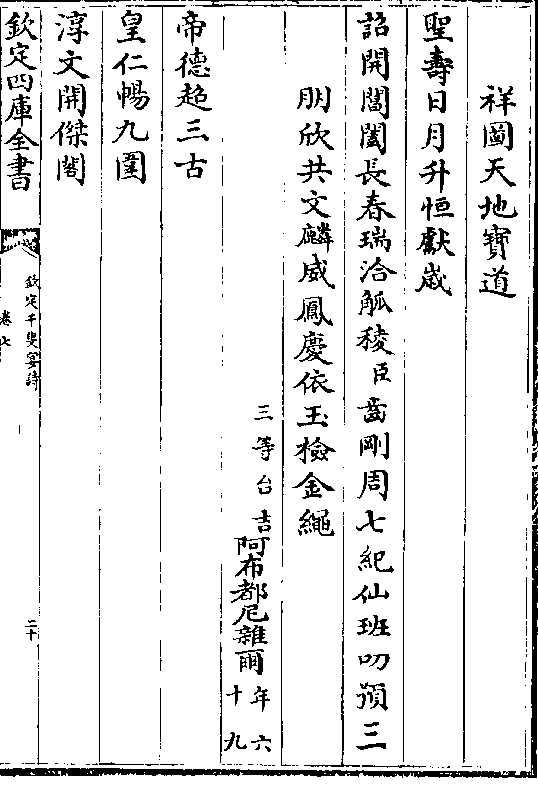 祥圖天地寶道
聖壽日月升恒獻嵗
詔開閶闔長春瑞洽觚稜臣齒剛周七紀仙班叨預三
朋欣共文麟威鳳慶依玉檢金繩
三等台吉阿布都尼雜爾年六十九
帝德超三古
皇仁暢九圍
淳文開傑閣
欽定四庫全書
欽定千叟宴詩
卷七
二十